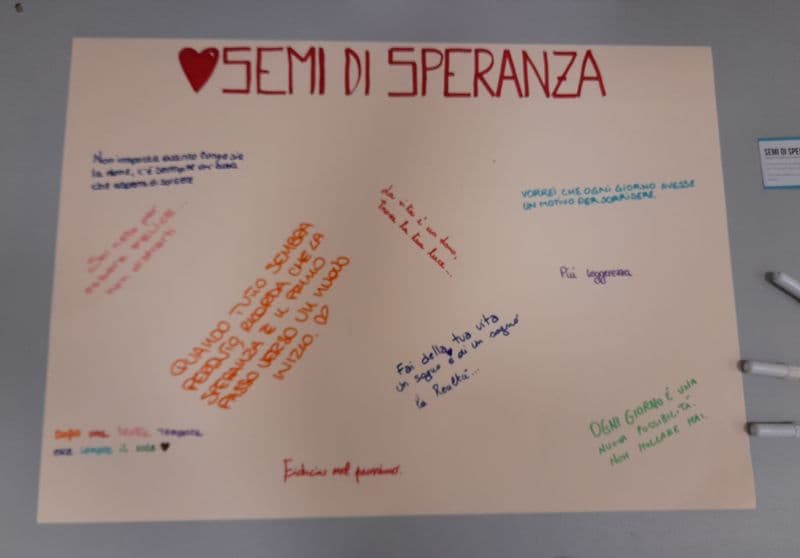 SEMI DI SPERANZA
Non importa quanto lunga sia
la notte, c'è sempre un'alba
che aspetta di sorgere
Sei nato per
essere FELICE
non
La vita è un dono,
Trova la tua luce...
VORREI CHE OGNI GIORNO AVESSE
UN MOTIVO PER SORRIDERE.
QUANDO TUTTO SEMBRA
PERDUTO RICORDA CHE LA
SPERANZA È IL PRIMO
PASSO VERSO UN NUOVO
INIZIO.
Più leggerezza
Fai della tua vita
un sogno e di un sogno
la Realtà...
DOPO UNA TEMPESTA
ESCE SEMPRE IL SOLE
Fiducia nel prossimo.
OGNI GIORNO È UNA
NUOVA POSSIBILITÀ.
NON MOLLARE MAI.
SEMI DI SPE